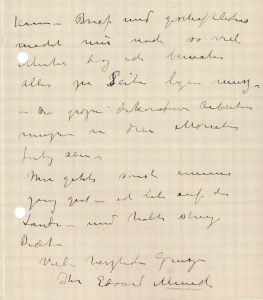 kann – Brief und geschäftliches
macht mir noch so viel
Mühe daß ich beinahe
alles zur Seite legen muss –
– Die große dekorative Arbeiten
müssen in drei Monaten
fertig sein –
Mir geht's sonst
ganz gut – ich lebe auf dem
Lande – und halte strenge
Diæt –
Viele herzliche Grüsse
Ihr Edvard Munch